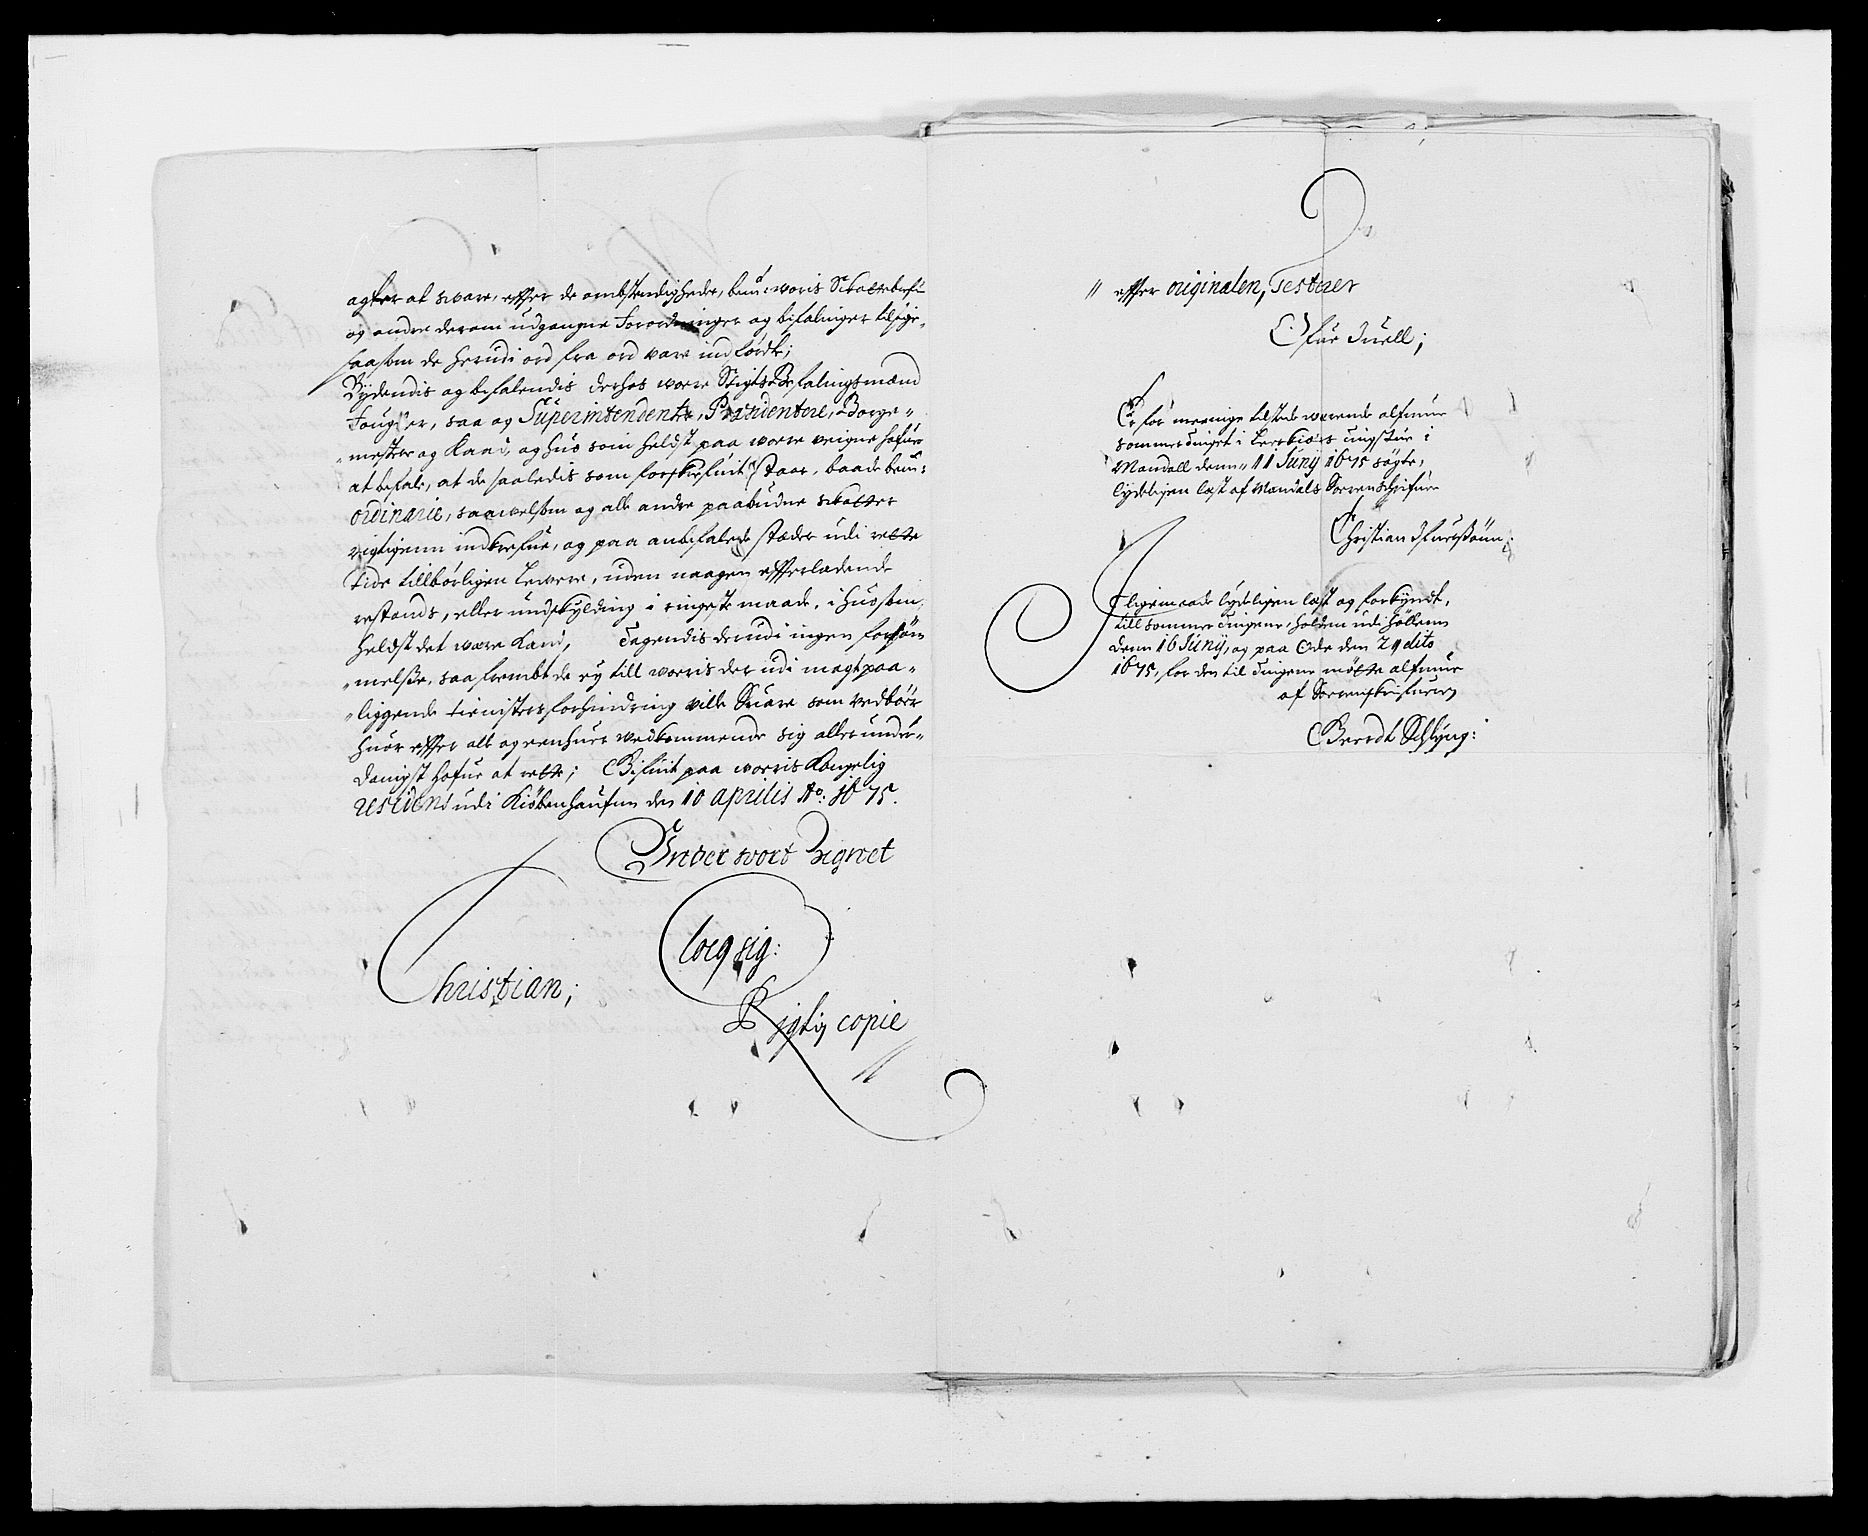 agter at svare, effter de ombstendigheder, bem:te voris Skattebref
og andre derom udgangne Forordninger og befalinger tilsige,
saasom de herudi ord fra ord vare indførdte;
Bydendis og befalendis derhos vorre Stigts Befalingsmænd
Fougder, saa og Superintendenter, Præsidentere, Borge-
-mestere og Raad, og huo som heldst paa vorre veigne hafuer
at befale, at de saaledis som forskrefuit staar, baade bem:te
ordinarie, saavelsom og alle andre paabudne skatter
rigtigenn indkrefue, og paa anbefalede stæder udi rette
tide tillbørligen levere, uden naagen effterladende
restands, eller undskylding i ringeste maade, i huosom
heldst det være kand, Tagendis derudi ingen forsøm
-melsse, saa frembt de ey till vorris der udi magtpaa-
-liggende tienistes forhindring ville Suare som vedbør
huor effter alle og eenhuer vedkommende sig aller under-
danigst hafuer at rette; Befuit paa vorris Kongelig
residens udi Kiøbenhaufuen den 10 aprilis Ao: 1675.
Under vort Zignet
Christian;
loco sig:
Rigtig copie
// effter originalen, Testerer
Ofue Juell;
Er for meenige tilstede værende almue
sommertinget i tingstue i
Mandall denn 11 Juny 1675 søgte,
lydeligen læst af Mandals Sorrenschrifuer
Christian
Jligemaade lydeligen læst og forkyndt,
till sommer Tingene, holden udi Høllenn
denn 16 Juny, og paa Ode den 21 dito
1675, for den til Tingene møtte almue
af Sorrenskrifueren
Berrdt